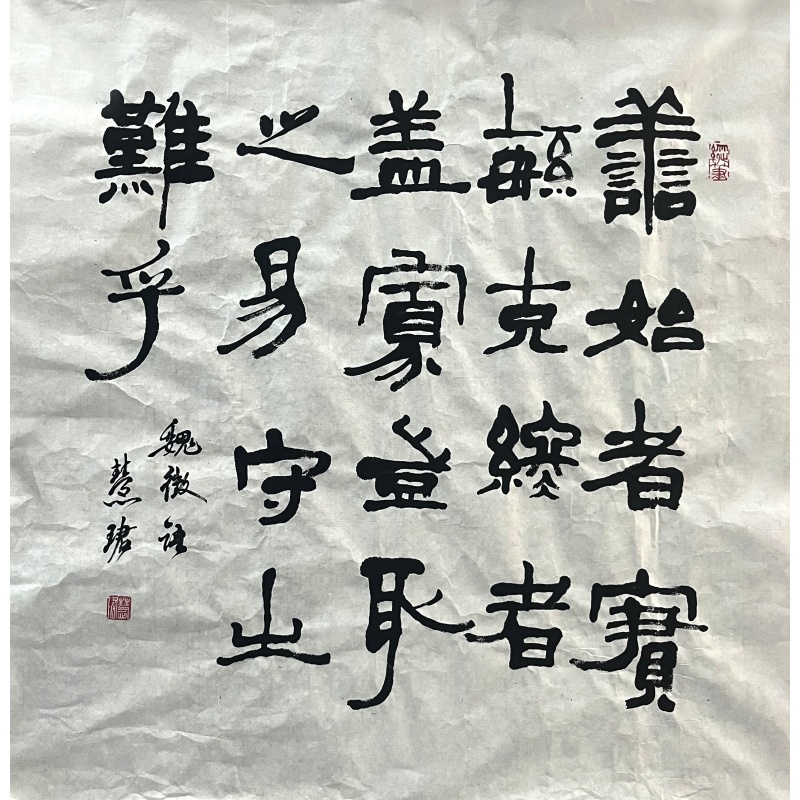 譱始者實
緐克終者
盖寡豈取
之易守之
難乎
魏徵語
慧珺